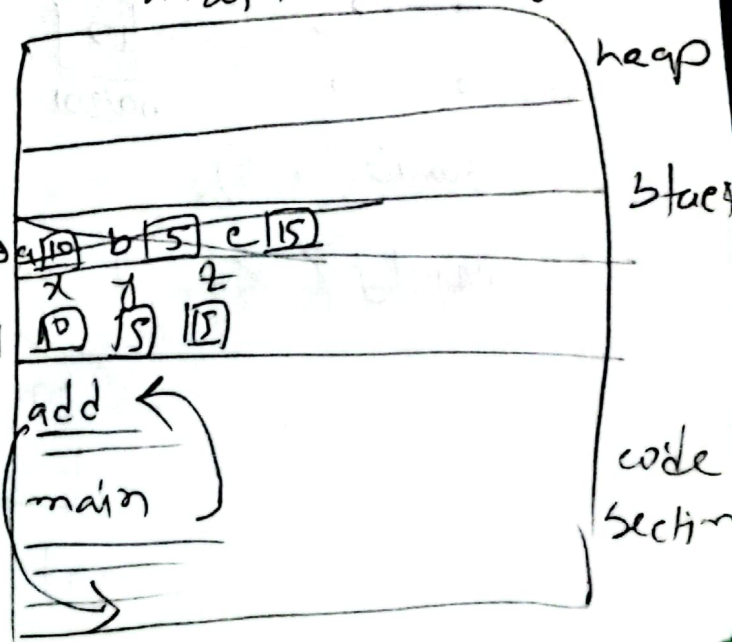 heap
stack
a 10 b 5 c 15
x y z
10 5 15
add
main
code
section